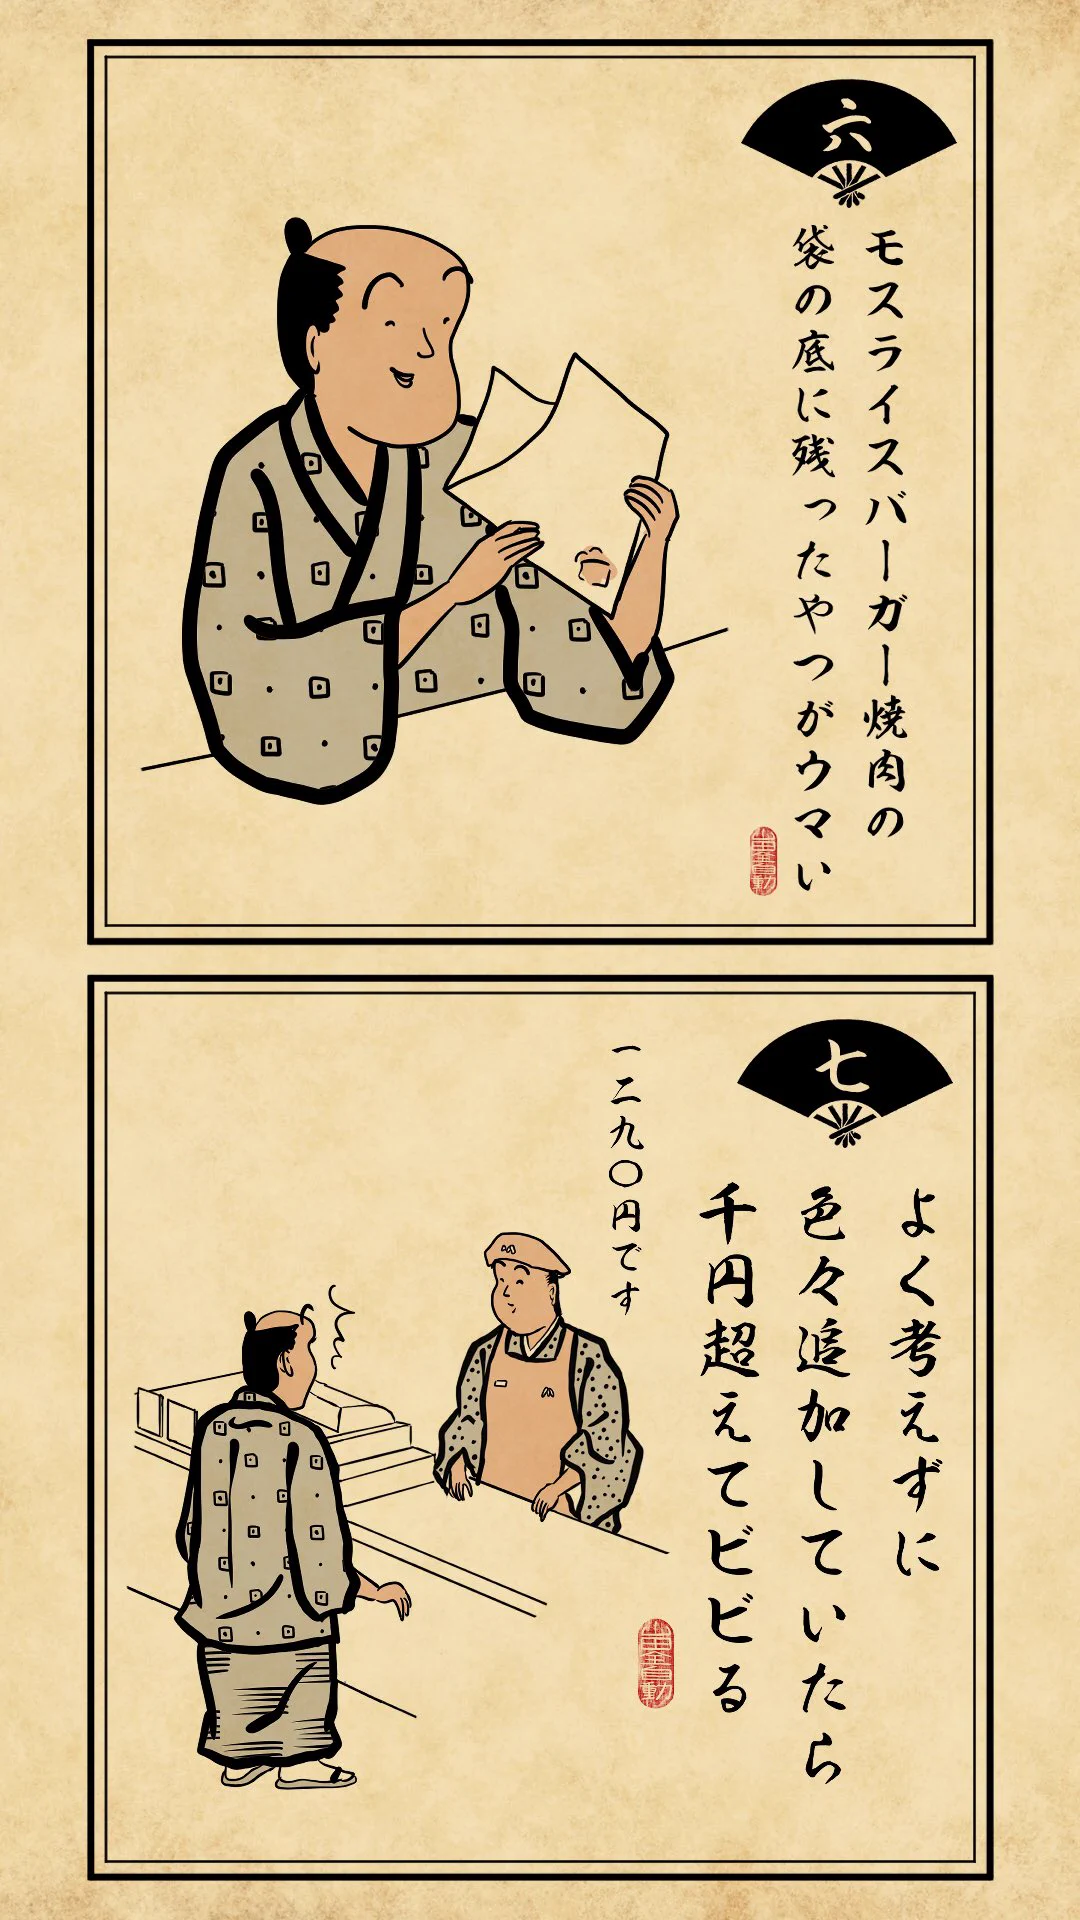 六
モスライスバーガー焼肉の
袋の底に残ったやつがウマい
七
よく考えずに
色々追加していたら
千円超えてビビる
一二九〇円です